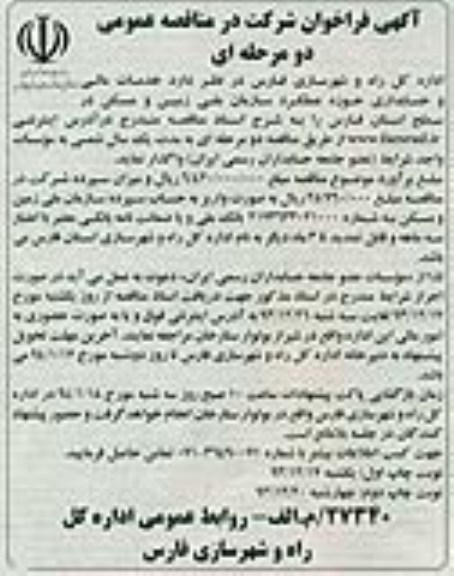 آگهی فراخوان شرکت در مناقصه عمومی
دو مرحله ای
اداره کل راه و شهرسازی فارس در نظر دارد خدمات مالی
و حسابداری حوزه عملکرد سازمان ملی زمین و مسکن در
سطح استان فارس را به شرح اسناد مناقصه مندرج در آدرس اینترنتی
از طریق مناقصه دو مرحله ای به مدت یک سال شمسی به موسسات
واجد شرایط (عضو جامعه حسابداران رسمی ایران) واگذار نماید.
مبلغ برآورد موضوع مناقصه مبلغ ریال و میزان سپرده شرکت در
مناقصه مبلغ ریال به صورت واریز به حساب سپرده سازمان ملی زمین
و مسکن به شماره بانک ملی و یا ضمانت نامه بانکی معتبر با اعتبار
سه ماهه و قابل تمدید تا ۳ ماه دیگر به نام اداره کل راه و شهرسازی استان فارس می
باشد.
لذا از موسسات عضو جامعه حسابداران رسمی ایران، دعوت به عمل می آید در صورت
احراز شرایط مندرج در اسناد مذکور جهت دریافت اسناد مناقصه از روز یکشنبه مورخ
لغایت سه شنبه به آدرس اینترنتی فوق و یا به صورت حضوری به
امور مالی این اداره واقع در شیراز بولوار ستارخان مراجعه نمایند. آخرین مهلت تحویل
پیشنهاد به دبیرخانه اداره کل راه و شهرسازی فارس تا روز دوشنبه مورخ می
باشد.
زمان بازگشایی پاکت پیشنهادات ساعت ۱۰ صبح روز سه شنبه مورخ در اداره
کل راه و شهرسازی فارس واقع در بولوار ستارخان انجام خواهد گرفت و حضور پیشنهاد
کنندگان در جلسه بلامانع است.
جهت کسب اطلاعات بیشتر با شماره تماس حاصل فرمایید.
نوبت چاپ اول: یکشنبه
نوبت چاپ دوم: چهارشنبه
۲۷۳۴۰/م.الف- روابط عمومی اداره کل
راه و شهرسازی فارس